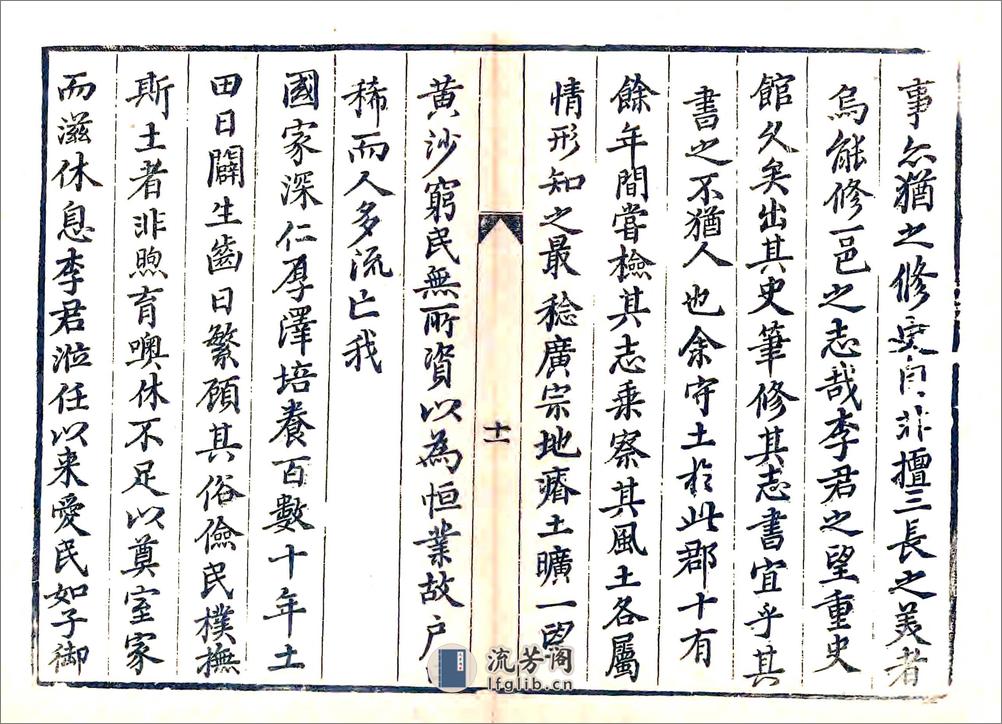 事亦猶之修史自非擅三長之美者
烏能修一邑之志哉李君之望重史
館久矣出其史筆修其志書宜乎其
書之不猶人也余守土於此郡十有
餘年間嘗檢其志乘察其風土各屬
情形知之最稔廣宗地瘠土曠一望
十一
黄沙窮民無所資以為恒業故户
稀而人多流亡我
國家深仁厚澤培養百數十年土
田日闢生齒日繁顧其俗儉民樸撫
斯土者非煦育噢休不足以奠室家
而滋休息李君涖任以来愛民如子御
流芳阁
lfglib.cn